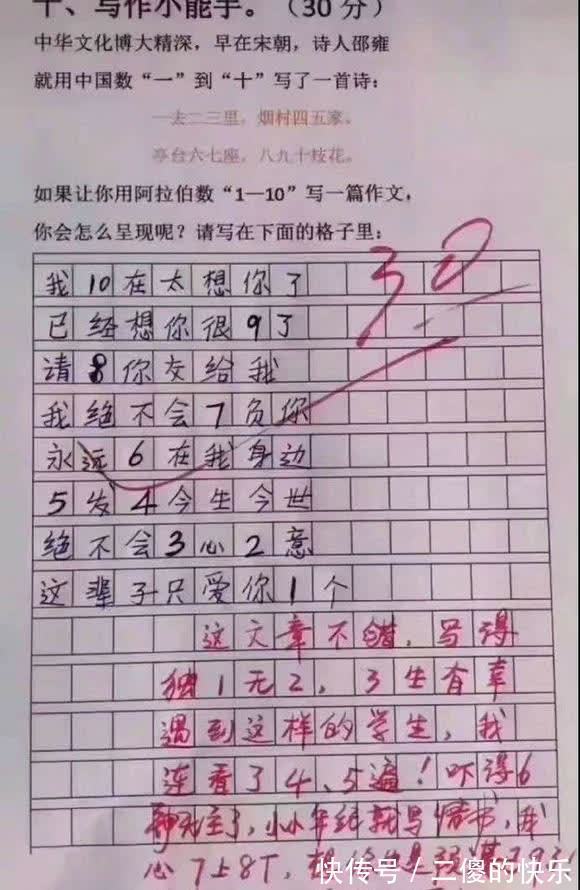 十、写作小能手。（30 分）
中华文化博大精深，早在宋朝，诗人邵雍
就用中国数“一”到“十”写了一首诗：
一去二三里，烟村四五家。
亭台六七座，八九十枝花。
如果让你用阿拉伯数“1—10”写一篇作文，
你会怎么呈现呢？请写在下面的格子里：
30
我10在太想你了
已经想你很9了
请8你交给我
我绝不会7负你
永远6在我身边
5发4今生今世
绝不会3心2意
这辈子只爱你1个
这文章不错，写得
独1无2，3生有幸
遇到这样的学生，我
连看了4、5遍！吓得6
神无主了，小小年纪就写情书，我
心7上8下，
快传号／二傻的快乐